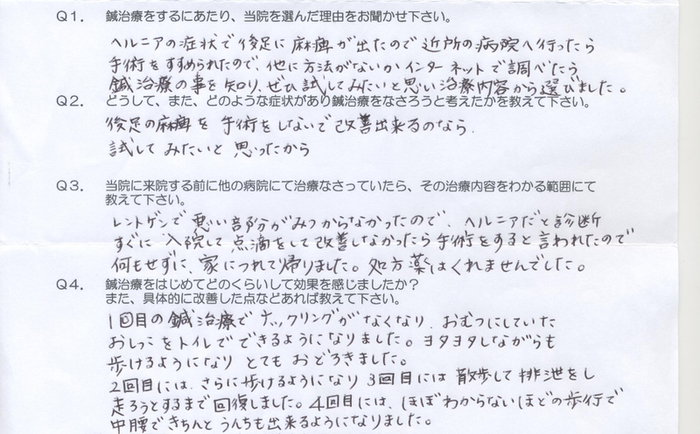 Q1. 鍼治療をするにあたり、当院を選んだ理由をお聞かせ下さい。
ヘルニアの症状で後足に麻痺が出たので近所の病院へ行ったら
手術をすすめられたので、他に方法がないかインターネットで調べたら
鍼治療の事を知り、ぜひ試してみたいと思い治療内容から選びました。
Q2. どうして、また、どのような症状があり鍼治療をなさろうと考えたかを教えて下さい。
後足の麻痺を手術をしないで改善出来るのなら
試してみたいと思ったから
Q3. 当院に来院する前に他の病院にて治療なさっていたら、その治療内容をわかる範囲にて
教えて下さい。
レントゲンで悪い部分がみつからなかったので、ヘルニアだと診断
すぐに入院して点滴をして改善しなかったら手術をすると言われたので
何もせずに、家につれて帰りました。処方薬はくれませんでした。
Q4. 鍼治療をはじめてどのくらいして効果を感じましたか?
また、具体的に改善した点などあれば教えて下さい。
1回目の鍼治療でナックリングがなくなり、おむつにしていた
おしっこをトイレでできるようになりました。ヨタヨタしながらも
歩けるようになりとてもおどろきました。
2回目には、さらに歩けるようになり3回目には散歩して排泄をし
走ろうとするまで回復しました。4回目には、ほぼわからないほどの歩行で
中腰できちんとうんちも出来るようになりました。